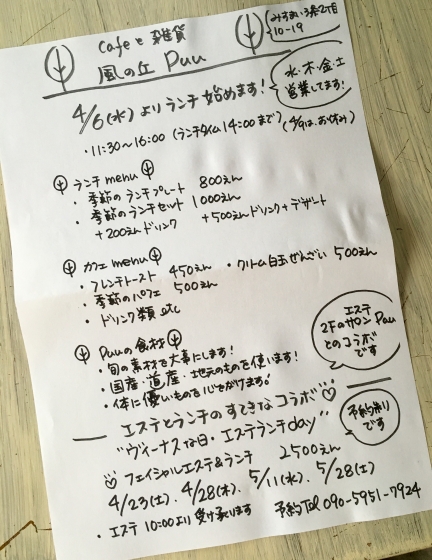 cafeと雑貨
風の丘 Puu
みすまい3条2丁目
10-19
4/6(水)よりランチ始めます!
水・木・金・土
営業してます!
・11:30~16:00(ランチタイム14:00まで)(4/9はお休み)
ランチmenu
・季節のランチプレート 800えん
・季節のランチセット 1000えん
+200えんドリンク +500えんドリンク+デザート
カフェmenu
・フレンチトースト 450えん ・クリーム白玉ぜんざい 500えん
・季節のパフェ 500えん
・ドリンク類 etc
Puuの食材
・旬の素材を大事にします!
・国産・道産・地元のものを使います!
・体に優しいものを心がけます!
エステ
2FのサロンPuu
とのコラボ
です
エステとランチのすてきなコラボ♡
"ヴィーナスな日・エステランチday"
予約制り
です
♡フェイシャルエステ&ランチ 2500えん
4/23(土)、4/28(木)、5/11(水)、5/28(土)
・エステ 10:00より受け承ります 予約Tel 090-5951-7924